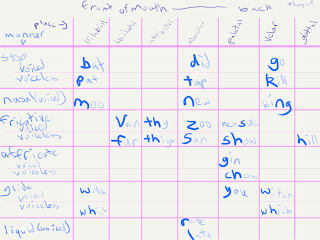 front of mouth back
place →
manner
bilabial labiodental interdental alveolar palatal velar glottal
stop
voiced bat did go
voiceless pat tap kill
nasal (voiced) moo new bing
fricative
voiced van thy zoo
voiceless fur thigh sin show hill
affricate
voiced gin
voiceless chow
glide
voiced witch you witch
voiceless which which
liquid (voiced) rate
late